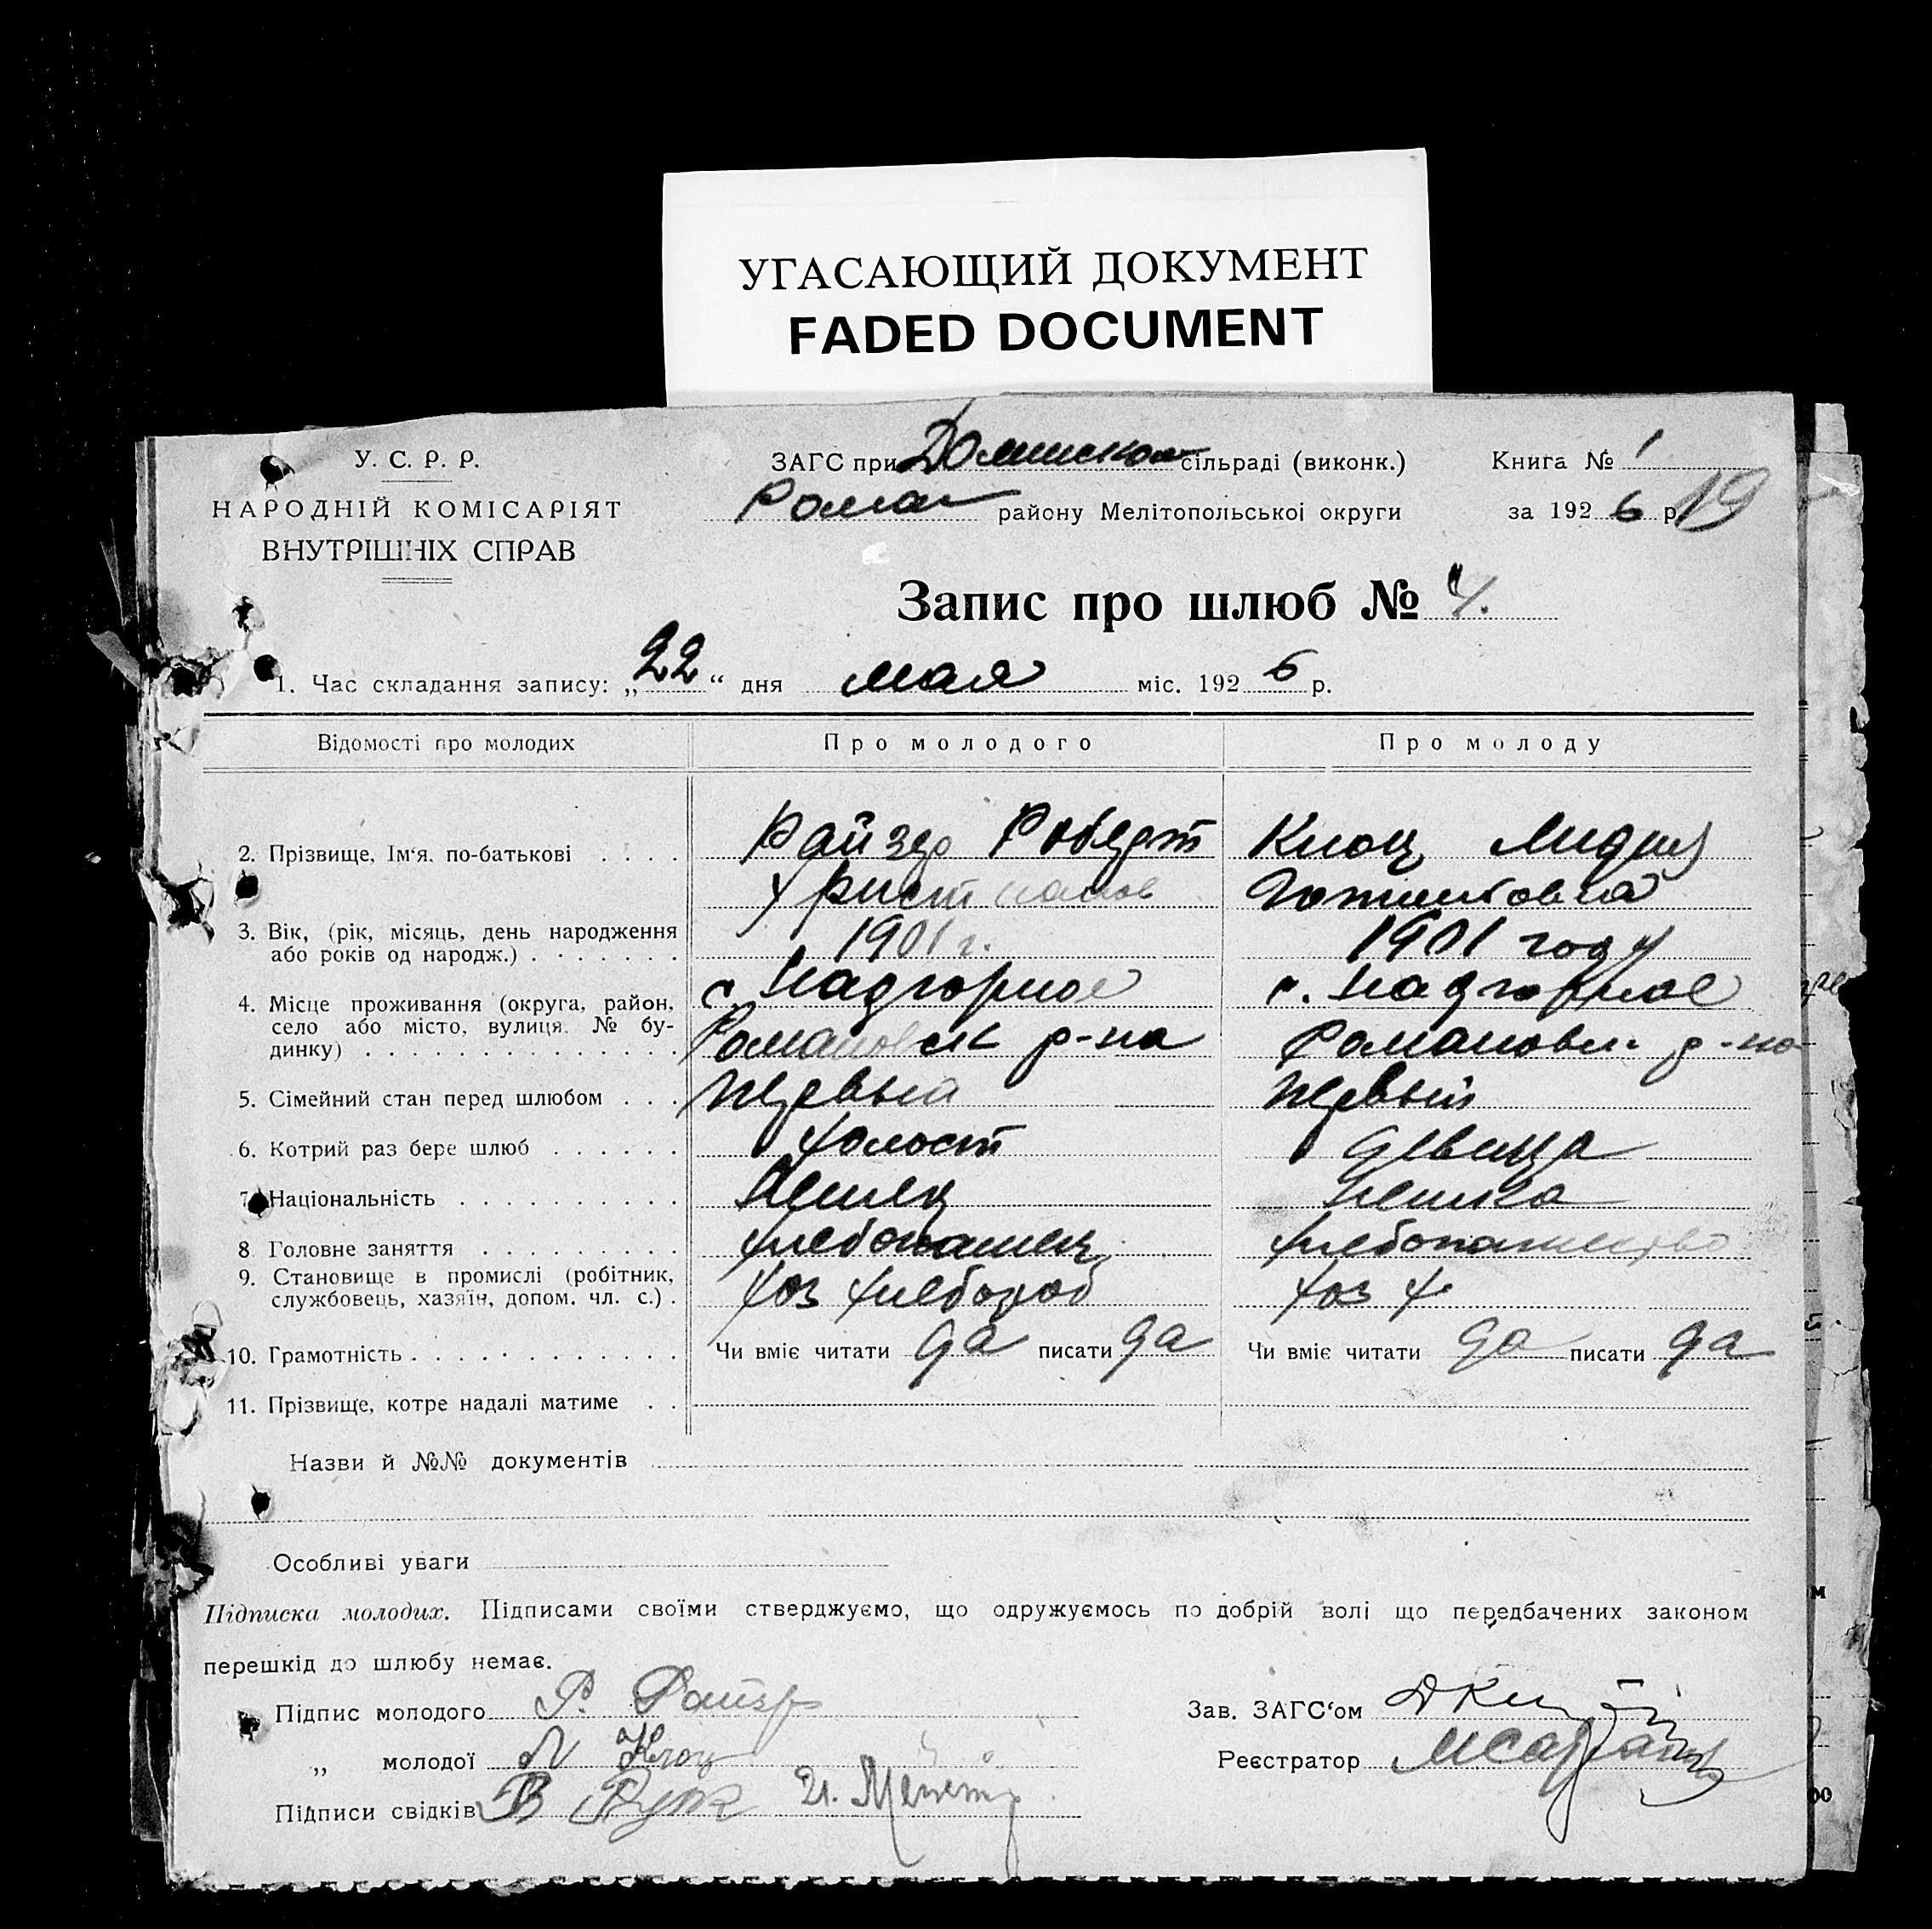 УГАСАЮЩИЙ ДОКУМЕНТ
FADED DOCUMENT
У. С. Р. Р.
НАРОДНІЙ КОМІСАРІЯТ
ВНУТРІШНІХ СПРАВ
ЗАГС при сільраді (виконк.)
Роман району Мелітопольської округи
Книга № 1
за 1926 р. 19
Запис про шлюб № 4.
1. Час складання запису: „22“ дня мая міс. 1926 р.
Відомості про молодих Про молодого Про молоду
2. Прізвище, Ім‘я, по-батькові . . . . Райзер Роберт Клоц Лидия
Христианов
3. Вік, (рік, місяць, день народження або років од народж.) . . . . . . . 1901 г. 1901 году
4. Місце проживання (округа, район, село або місто, вулиця, № будинку) . . . . . . . . . . . . . . с. Надгорное с. Надгорное
Романовск р-на Романовск р-на
5. Сімейний стан перед шлюбом . . . первый первый
6. Котрий раз бере шлюб . . . . . . холост девица
7. Національність . . . . . . . . . . Немец Немка
8. Головне заняття . . . . . . . . . хлебопашец хлебопашество
9. Становище в промислі (робітник, службовець, хазяїн, допом. чл. с.) . хоз хлебороб хоз х
10. Грамотність . . . . . . . . . . . . Чи вміє читати да писати да Чи вміє читати да писати да
11. Прізвище, котре надалі матиме . .
Назви й №№ документів
Особливі уваги
Підписка молодих. Підписами своїми стверджуємо, що одружуємось по добрій волі що передбачених законом
перешкід до шлюбу немає.
Підпис молодого Р. Райзер
„ молодої Л Клоц
Підписи свідків В
Зав. ЗАГС‘ом
Реєстратор